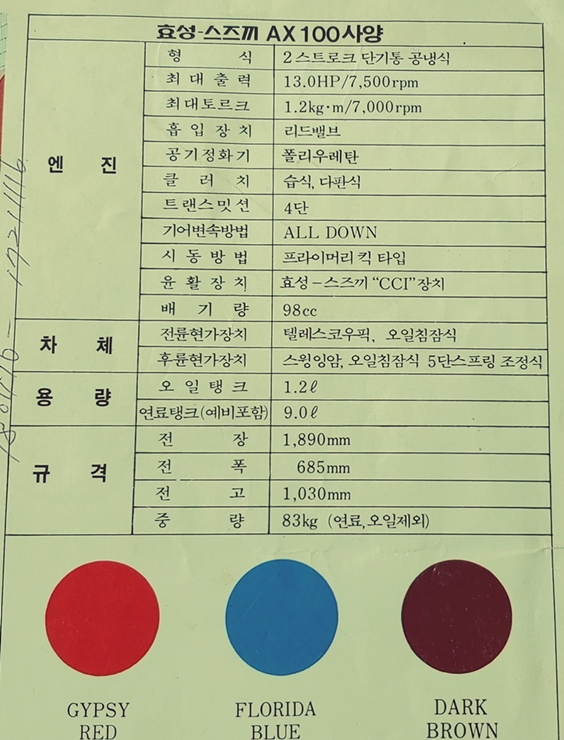 효성-스즈끼 AX 100 사양
엔 진
형 식 2 스트로크 단기통 공냉식
최 대 출 력 13.0HP/7,500rpm
최대토르크 1.2kg·m/7,000rpm
흡 입 장 치 리드밸브
공기정화기 폴리우레탄
클 러 치 습식, 다판식
트랜스밋션 4단
기어변속방법 ALL DOWN
시 동 방 법 프라이머리 킥 타입
윤 활 장 치 효성-스즈끼 "CCI"장치
배 기 량 98cc
차 체
전륜현가장치 텔레스코우픽, 오일침잠식
후륜현가장치 스윙잉암, 오일침잠식 5단스프링 조정식
용 량
오 일 탱 크 1.2ℓ
연료탱크(예비포함) 9.0ℓ
규 격
전 장 1,890mm
전 폭 685mm
전 고 1,030mm
중 량 83kg (연료,오일제외)
GYPSY
RED
FLORIDA
BLUE
DARK
BROWN